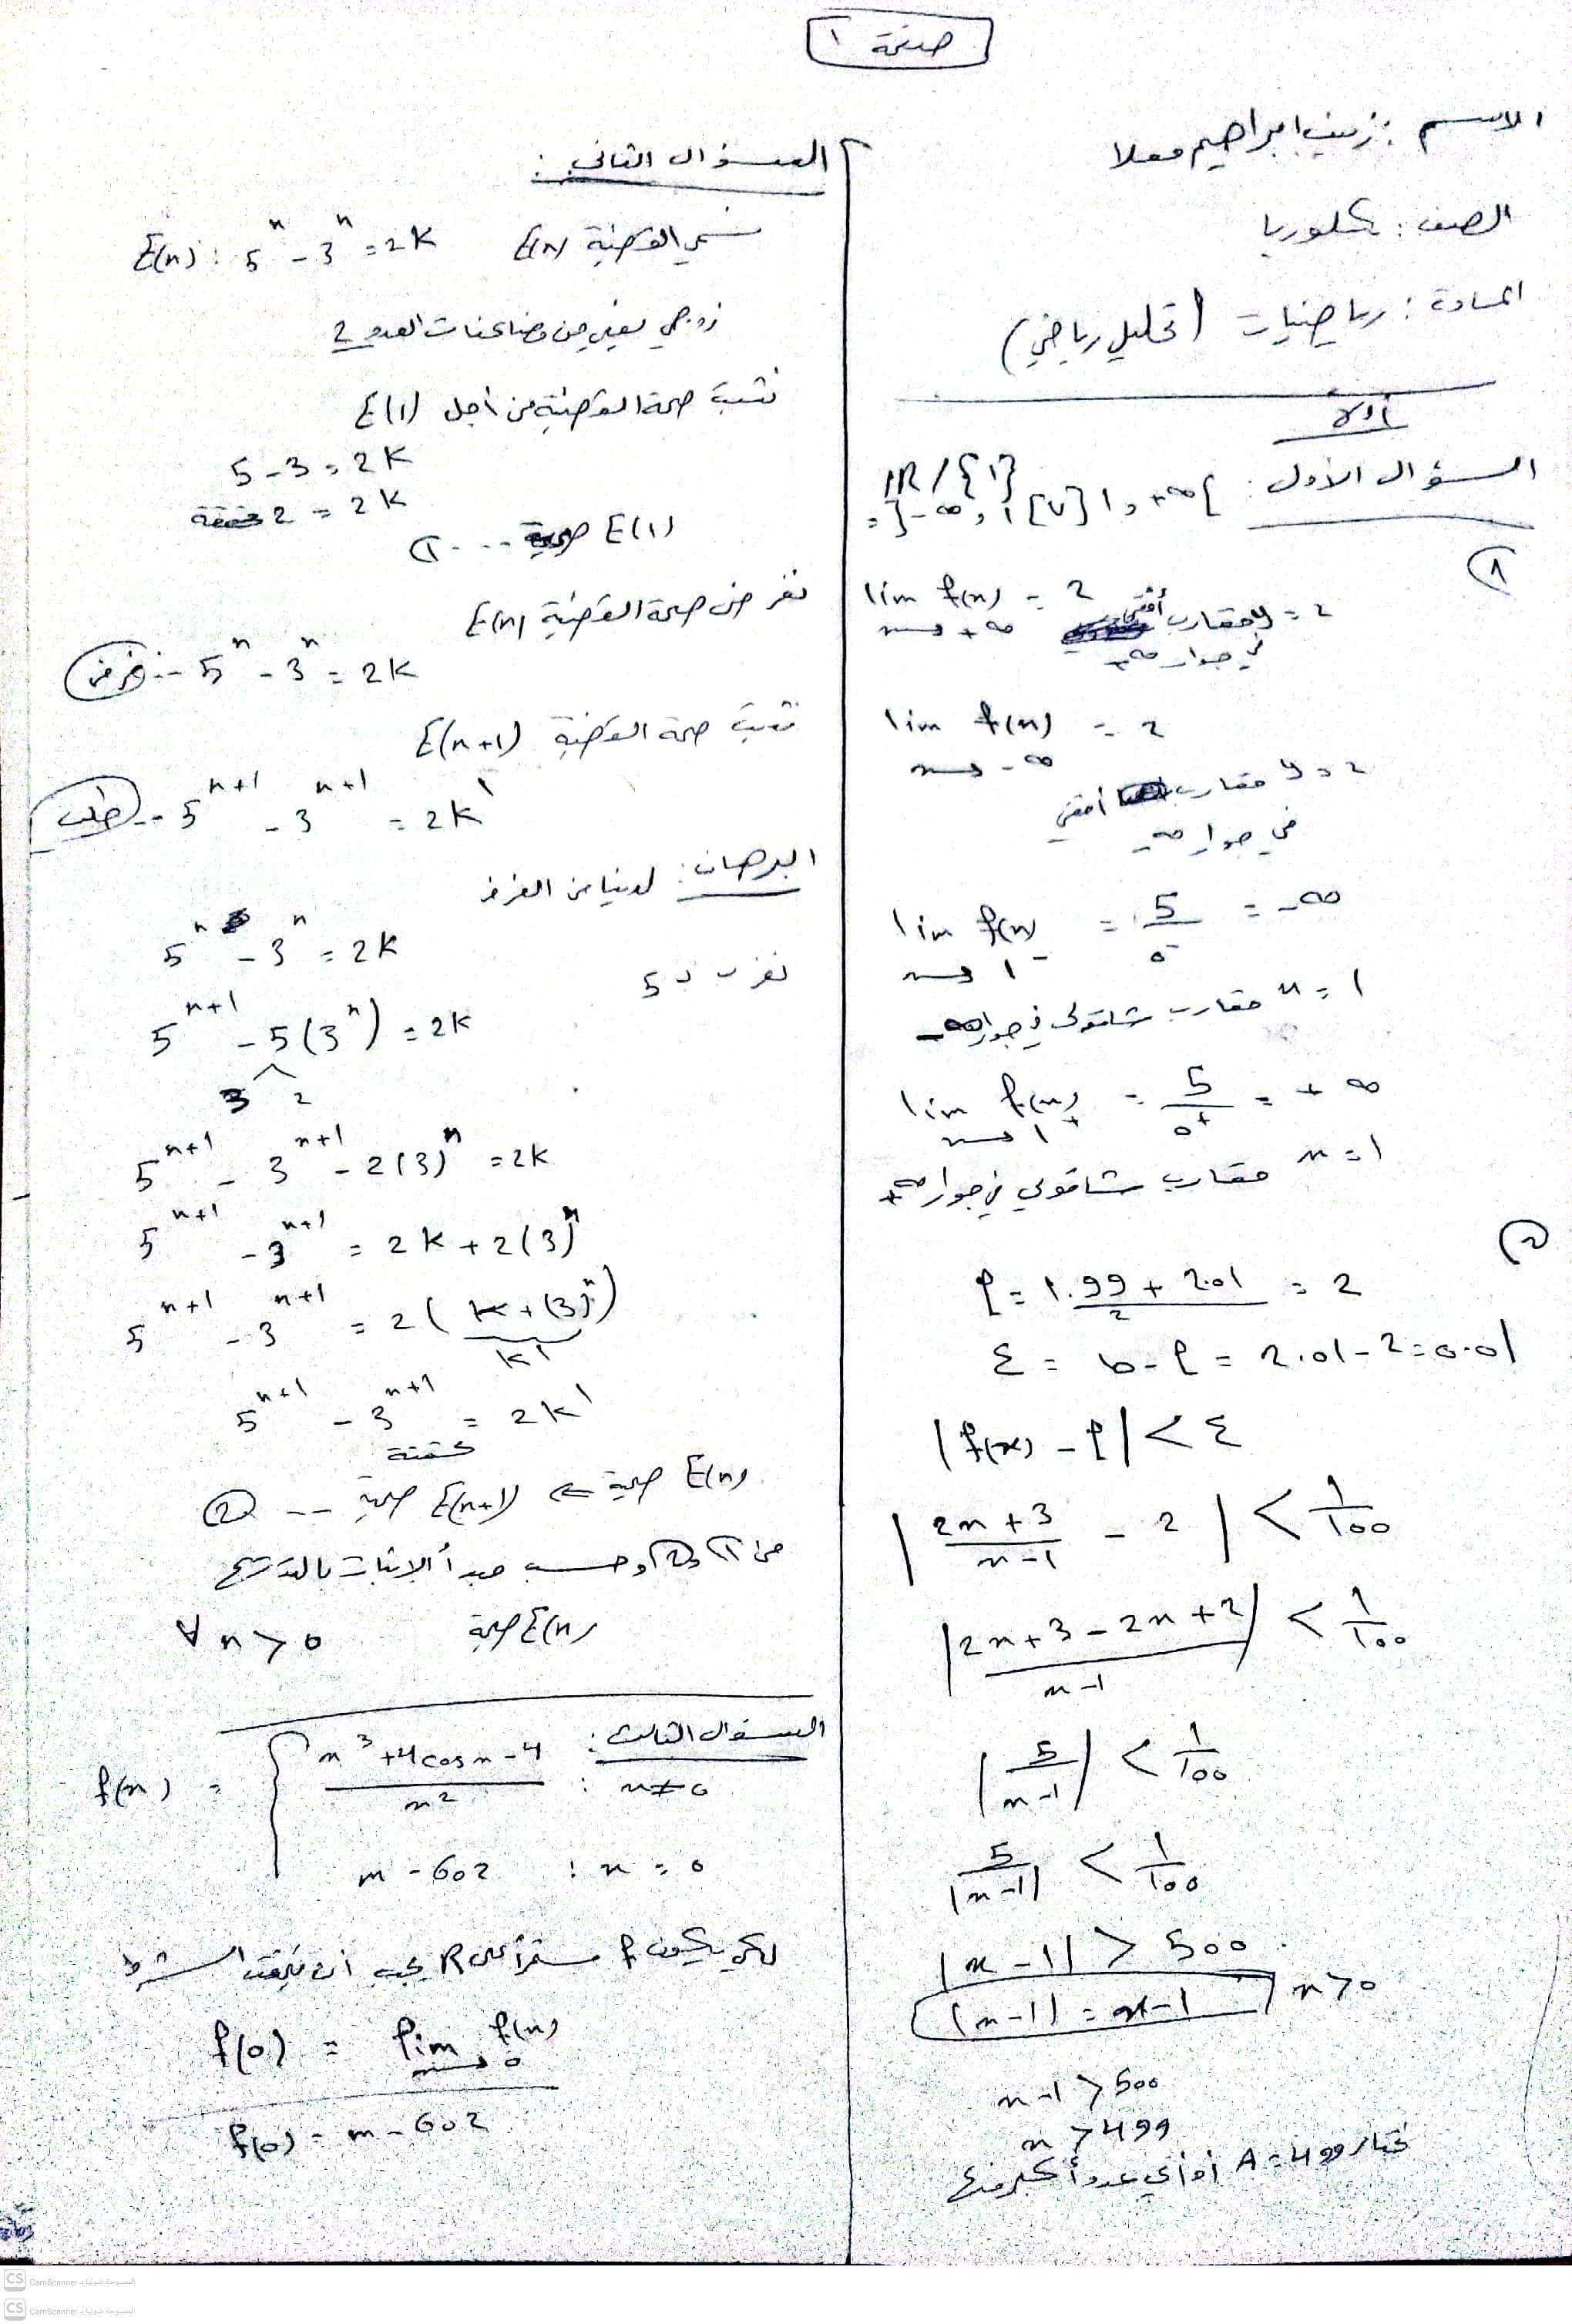 صفحة ١
الاسم : زينب ابراهيم معلا
الصف : بكلوريا
المادة : رياضيات (تحليل رياضي)
أولاً
السؤال الأول : ]-∞, 1[ U ]1, +∞[ = IR / {1}
①
lim f(x) = 2
x→+∞
y = 2 مقارب أفقي
في جوار +∞
lim f(x) = 2
x→-∞
y = 2 مقارب أفقي
في جوار -∞
lim f(x) = 5/0⁻ = -∞
x→1⁻
x = 1 مقارب شاقولي في جوار -∞
lim f(x) = 5/0⁺ = +∞
x→1⁺
x = 1 مقارب شاقولي في جوار +∞
②
ℓ = (1.99 + 2.01)/2 = 2
ε = b - ℓ = 2.01 - 2 = 0.01
|f(x) - ℓ| < ε
|(2x+3)/(x-1) - 2| < 1/100
|(2x+3-2x+2)/(x-1)| < 1/100
|5/(x-1)| < 1/100
5/|x-1| < 1/100
|x-1| > 500
|x-1| = x-1 x>0
x-1 > 500
x > 499
نختار A = 499 أو أي عدد أكبر منها
السؤال الثاني :
نسمي القضية E(n) E(n) : 5ⁿ - 3ⁿ = 2K
زوجي يعني من مضاعفات العدد 2
نثبت صحة القضية من أجل E(1)
5 - 3 = 2K
2 = 2K محققة
E(1) صحيحة ... ①
نفرض صحة القضية E(n)
5ⁿ - 3ⁿ = 2K ... فرض
نثبت صحة القضية E(n+1)
5ⁿ⁺¹ - 3ⁿ⁺¹ = 2K' ... طلب
البرهان : لدينا من الفرض
5ⁿ - 3ⁿ = 2K
نضرب ب 5
5ⁿ⁺¹ - 5(3ⁿ) = 2K
3 2
5ⁿ⁺¹ - 3ⁿ⁺¹ - 2(3)ⁿ = 2K
5ⁿ⁺¹ - 3ⁿ⁺¹ = 2K + 2(3)ⁿ
5ⁿ⁺¹ - 3ⁿ⁺¹ = 2(K + (3)ⁿ)
K'
5ⁿ⁺¹ - 3ⁿ⁺¹ = 2K'
محققة
E(n) صحيحة ⇐ E(n+1) صحيحة ... ②
من ① و ② وحسب مبدأ الإثبات بالتدريج
E(n) صحيحة ∀ n > 0
السؤال الثالث :
f(x) = { (x³ + 4cos x - 4)/x² : x ≠ 0
m - 602 : x = 0
لكي يكون f مستمراً على R يجب أن يحقق الشرط
f(0) = lim f(x)
x→0
f(0) = m - 602
CS الممسوحة ضوئيا بـ CamScanner
CS الممسوحة ضوئيا بـ CamScanner